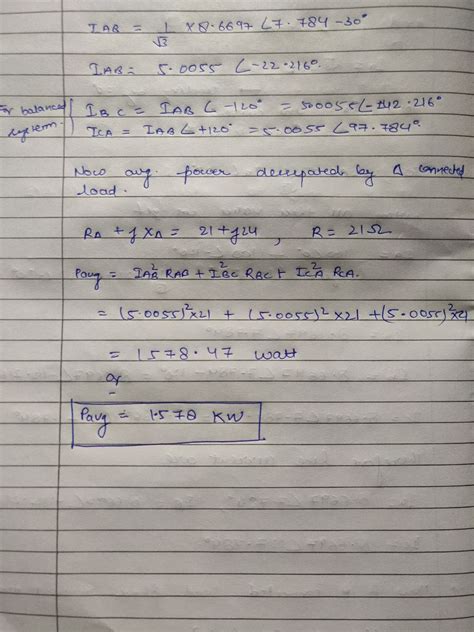 IAB = 1/√3 × 8.6697 ∠7.784 -30°
IAB = 5.0055 ∠-22.216°
For balanced system. { IBC = IAB ∠-120° = 5.0055 ∠-142.216°
ICA = IAB ∠+120° = 5.0055 ∠97.784°
Now avg. power dessipated by Δ connected
load.
RΔ + jXΔ = 21 + j24 , R = 21Ω
Pavg = IAB² RAB + IBC² RBC + ICA² RCA.
= (5.0055)²×21 + (5.0055)²×21 + (5.0055)²×21
= 1578.47 watt
or
Pavg = 1.578 KW